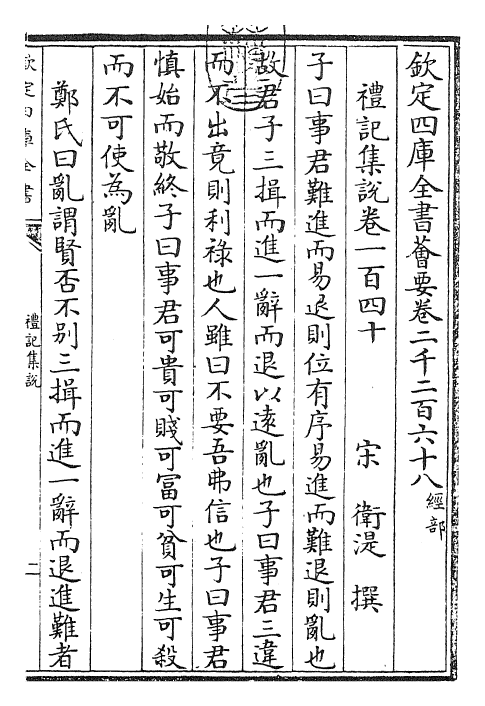 欽定四庫全書薈要卷二千二百六十八經部
禮記集說卷一百四十 宋 衛湜 撰
子曰事君難進而易退則位有序易進而難退則亂也
故君子三揖而進一辭而退以遠亂也子曰事君三違
而不出竟則利祿也人雖曰不要吾弗信也子曰事君
慎始而敬終子曰事君可貴可賤可富可貧可生可殺
而不可使為亂
鄭氏曰亂謂賢否不别三揖而進一辭而退進難者
欽定四庫全書
禮記集說